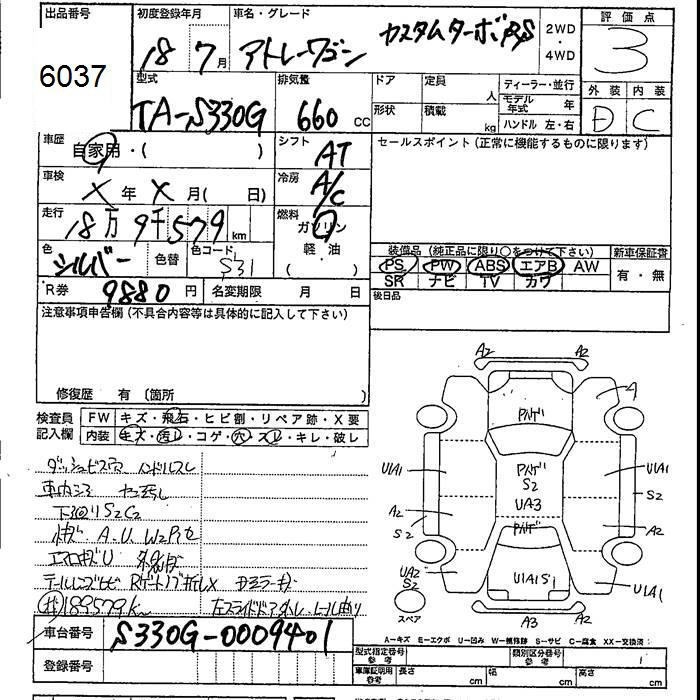 出品番号 初度登録年月 車名・グレード 評価点
6037 18 7月 アトレーワゴン カスタムターボRS 2WD・4WD 3
型式 排気量 ドア 定員 人 ディーラー・並行 外装 内装
TA-S330G 660 cc 形状 積載 kg モデル年式 年 D C
ハンドル 左・右
車歴 自家用・( ) シフト AT セールスポイント(正常に機能するものに限ります)
車検 X年 X月( 日) 冷房 A/C
走行 18万9千579km 燃料 ガソリン
軽・油
( )
色 シルバー 色替 色コード S31
装備品(純正品に限り○をつけて下さい) 新車保証書
PS PW ABS エアB AW 有・無
SR ナビ TV カワ
R券 9880円 名変期限 月 日 後日品
注意事項申告欄(不具合内容等は具体的に記入して下さい)
修復歴 有 〔箇所 〕
検査員記入欄 FW キズ・飛石・ヒビ割・リペア跡・X要
内装 キズ・汚レ・コゲ・穴・スレ・キレ・破レ
ダッシュビス穴 ハンドルスレ
下回りS2C2
A.U W2
エアロキズU
189579K
車台番号 S330G-0009401
登録番号
A2 A2
A
U1A1 U1A1
S2
A2 A2
S2
UA2
S2
U1A1
S2
UA3
U1A1S1
A3
スペア
A-キズ E-エクボ U-凹み W-補修跡 S-サビ C-腐食 XX-交換済:
型式指定番号 参考 類別区分番号 参考
車庫証明用 参考 長さ cm 幅 cm 高さ cm